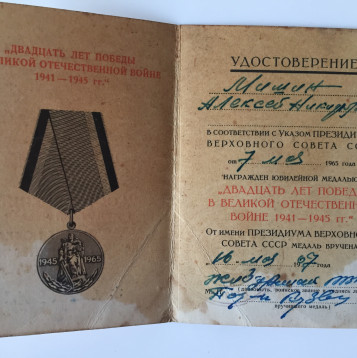 „ДВАДЦАТЬ ЛЕТ ПОБЕДЫ
ВЕЛИКОЙ ОТЕЧЕСТВЕННОЙ ВОЙНЕ
1941—1945 гг.“
1945 1965
УДОСТОВЕРЕНИЕ
Мишин
Алексей
В СООТВЕТСТВИИ С УКАЗОМ ПРЕЗИДИ
ВЕРХОВНОГО СОВЕТА СС
от 7 мая 1965 год
НАГРАЖДЕН ЮБИЛЕЙНОЙ МЕДАЛЬЮ
„ДВАДЦАТЬ ЛЕТ ПОБЕД
В ВЕЛИКОЙ ОТЕЧЕСТВЕН
ВОЙНЕ 1941—1945 гг.“
От имени ПРЕЗИДИУМА ВЕРХОВНО
СОВЕТА СССР МЕДАЛЬ ВРУЧЕНА
16 мая 1967
(должность, воинское звание и подпись
вручившего медаль)